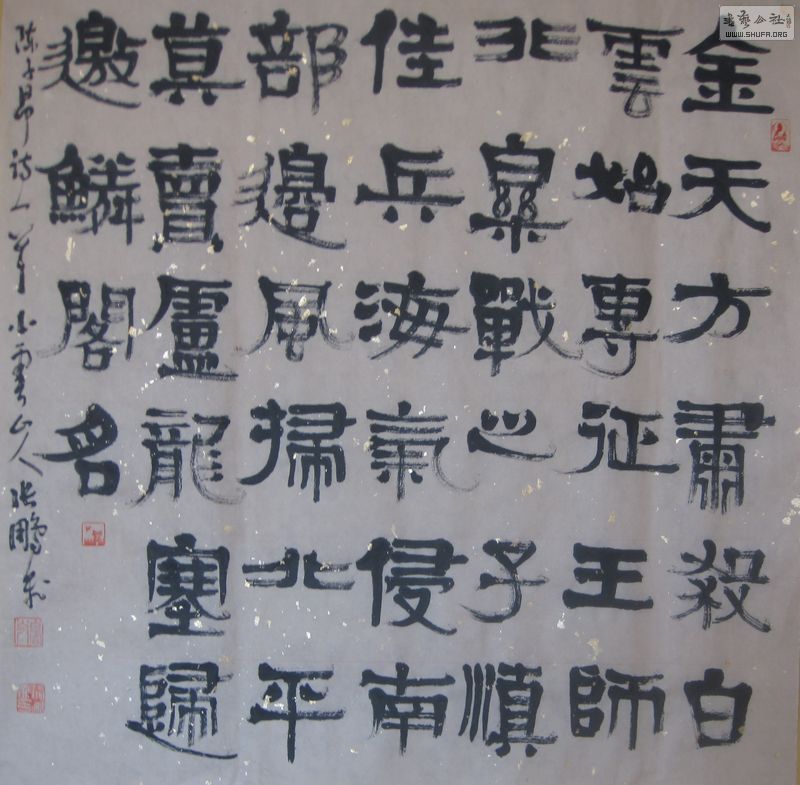 金天方肅殺白
雲始專征王師
北樂戰之子慎
佳兵海氣侵南
部邊風掃北平
莫賣盧龍塞歸
邀鱗閣名
陳子昂詩一首 山人張鵬
書藝公社
WWW.SHUFA.ORG